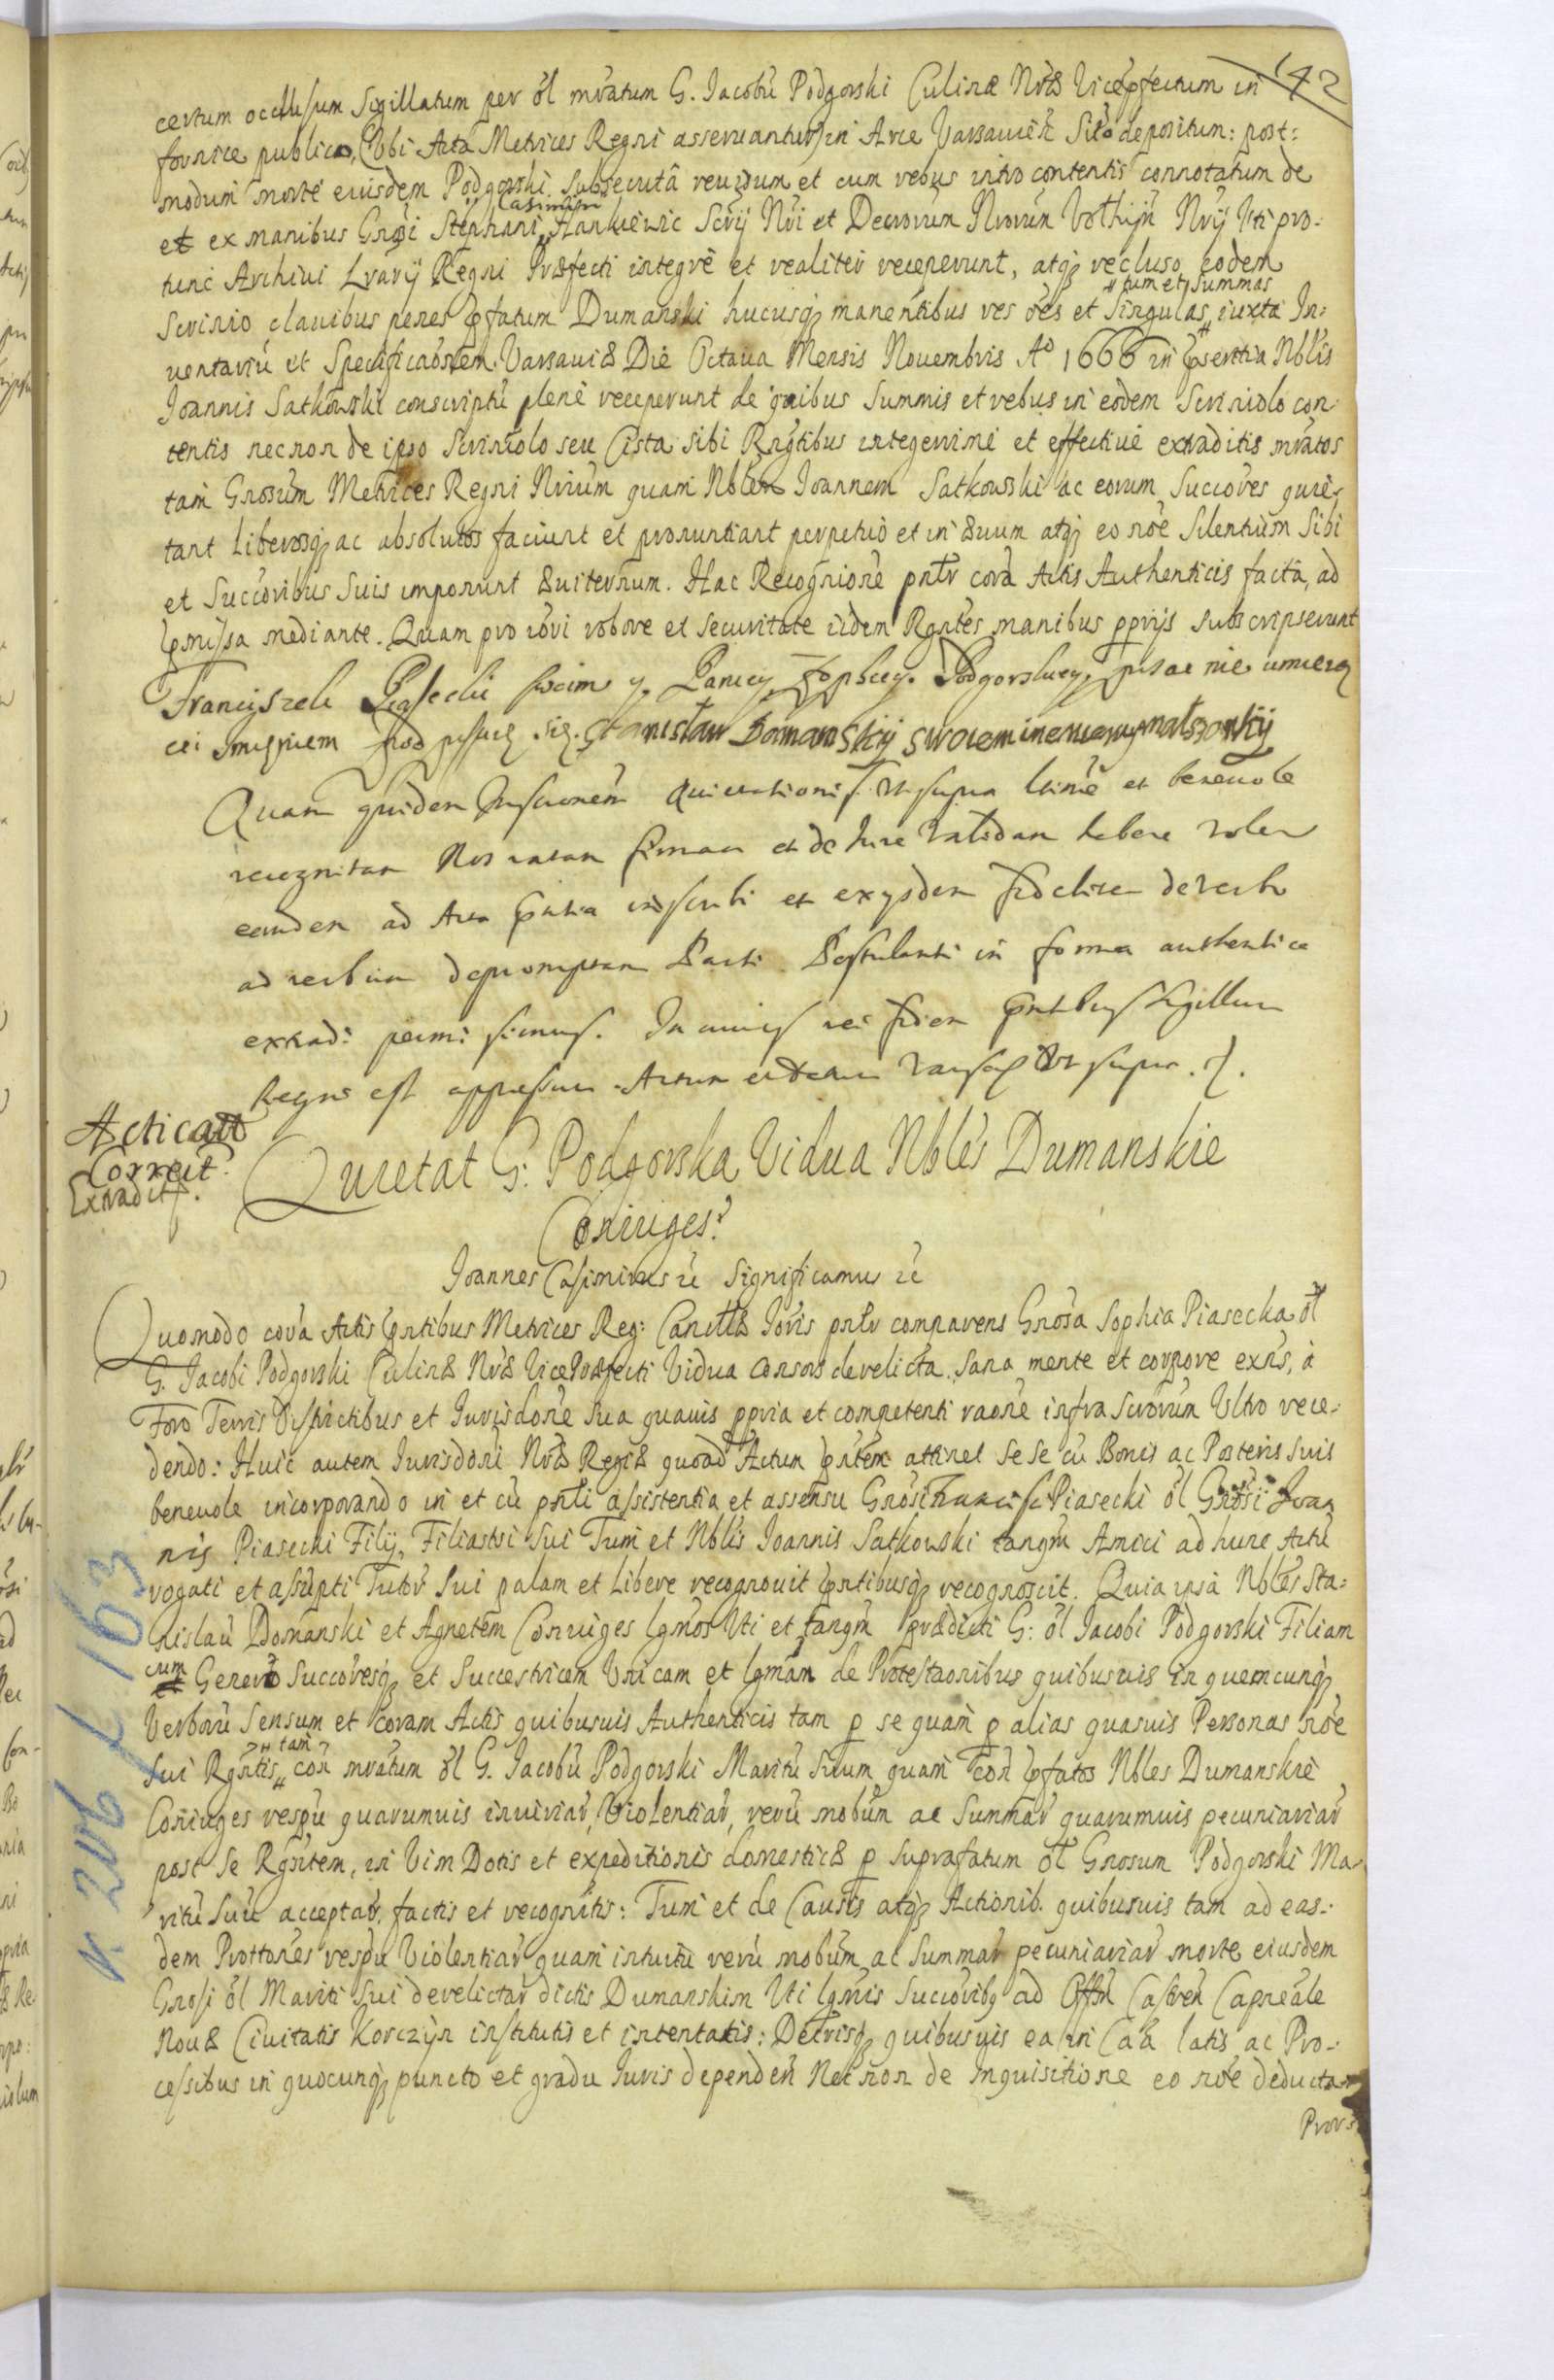 142
certum occlusum Sigillatum per ol mratum G. Jacobũ Podgorski Culinæ Nræ Vicepfectum in
fornice publico, (Ubi Acta Metrices Regni asseruantur) in Arce Varsauien Sito depositum: post:
modum morte eiusdem Podgorski subsecutâ reuisum et cum rebus intro contentis connotatum de
et ex manibus Gnosi Stephani Casimiri Hankiewic Scrij Nri et Decrorum Nrorum Vothyn Nrij Uti pro:
tunc Archiui Lrarij Regni Præfecti integrè et realiter receperunt, atq recluso eodem
Scrinio clauibus penes pfatum Dumanski hucusq manentibus res oẽs et Singulas, tum et Summas iuxta In:
uentariũ et Specificaoẽm Varsauiæ Die Octaua Mensis Nouembris Ao 1666 in psentia Nblis
Joannis Satkowski conscriptũ plenè receperunt de quibus Summis et rebus in eodem Scriniolo con
tentis necnon de ipso Scriniolo seu Cista sibi Rngtibus integerrimè et effectiuè extraditis mratos
tam Gnosum Metrices Regni Nrium quam Nblem Joannem Satkowski ac eorum Succores quie:
tant Liberosq ac absolutos faciunt et pronuntiant perpetuò et in æuum atq eo noẽ Silentium Sibi
et Succoribus Suis imponunt æuiternum. Hac Recognione pntr corã Actis Authenticis facta, ad
pmissa mediante. Quam pro roui robore et securitate iidem Rgntes manibus pprijs subscripserunt
Franciszek Piasecki swoim y Paniey Zophiey Podgorskiey pisac nie umieią
cei imięniem pod pisuię się. Stanisław Domanskij swoiem ineniem y małzonkij
Quam quidem Inscronem Quietationis Ut supra ltime et beneuole
recognitam Nos ratam firmam et de Jure Validam habere volen
eandem ad Acta pntia inscribi et ex ijsdem fideliter de verbo
ad verbum depromptam Parti Postulanti in forma authentica
extradi permi simus. In cuius rei fidem pntibus Sigillum
Regni est appressum Actum et Datum Varsaq Ut supra.
Acticatt
Correct
Extradit
Quietat G: Podgorska Vidua Nbles Dumanskie
Coniuges
Joannes Casimirus rc Significamus rc
Quomodo corã Actis pntibus Metrices Reg: Cancttæ Joris pntr comparens Gnosa Sophia Piasecka ol
G. Jacobi Podgorski Culinæ Nræ VicePræfecti Vidua Consors derelicta, sana mente et corpore exns, à
Foro Terris Districtibus et Jurisdone sua quauis ppria et competenti raone infra Scrorum Ultro rece:
dendo: Huic autem Jurisdoni Nræ Regiæ quoad Actum pntem attinet se se cũ Bonis ac Posteris suis
beneuole incorporando in et cũ pnli assistentia et assensu Gnosi Francisci Piasecki ol Gnosi Joan
nis Piasecki Filij, Filiastri sui Tum et Nblis Joannis Satkowski tanqm Amici ad hunc Actũ
rogati et assũpti Tutor sui palam et Libere recognouit pntibusq recognoscit. Quia ipsa Nbles Sta:
nislaũ Domanski et Agnetem Coniuges lgmos Uti et tanqm prædicti G: ol Jacobi Podgorski Filiam
cum Genero Succoresq et Succestricem Unicam et lgmam de Protestaonibus quibusuis in quemcunq
Verborũ Sensum et coram Actis quibusuis Authenticis tam p se quam p alias quasuis Personas noẽ
sui Rgntis, tam con mratum ol G. Jacobũ Podgorski Maritũ suum quam con pfatos Nbles Dumanskie
Coniuges respu quarumuis iniuriar, Violentiar, rerũ mobũm ac Summar quarumuis pecuniariar
post se Rgntem, in Vim Dotis et expeditionis domesticæ p suprafatum ol Gnosum Podgorski Ma
ritũ Suũ acceptar, factis et recognitis: Tum et de Causis atq Actionib. quibusuis tam ad eas:
dem Prottones respu Violentiar quam intuitu rerũ mobũm ac Summar pecuniariar morte eiusdem
Gnosi ol Mariti Sui derelictar dictis Dumanskim Uti lgmis Succoribq ad Offm Castren Capneale
Nouæ Ciuitatis Korczyn institutis et intentatis: Decrisq quibusuis ea in Caa latis ac Pro:
cessibus in quocunq puncto et gradu Juris dependen Necnon de Inquisitione eo noẽ deducta
Prors
N. 206 / 163